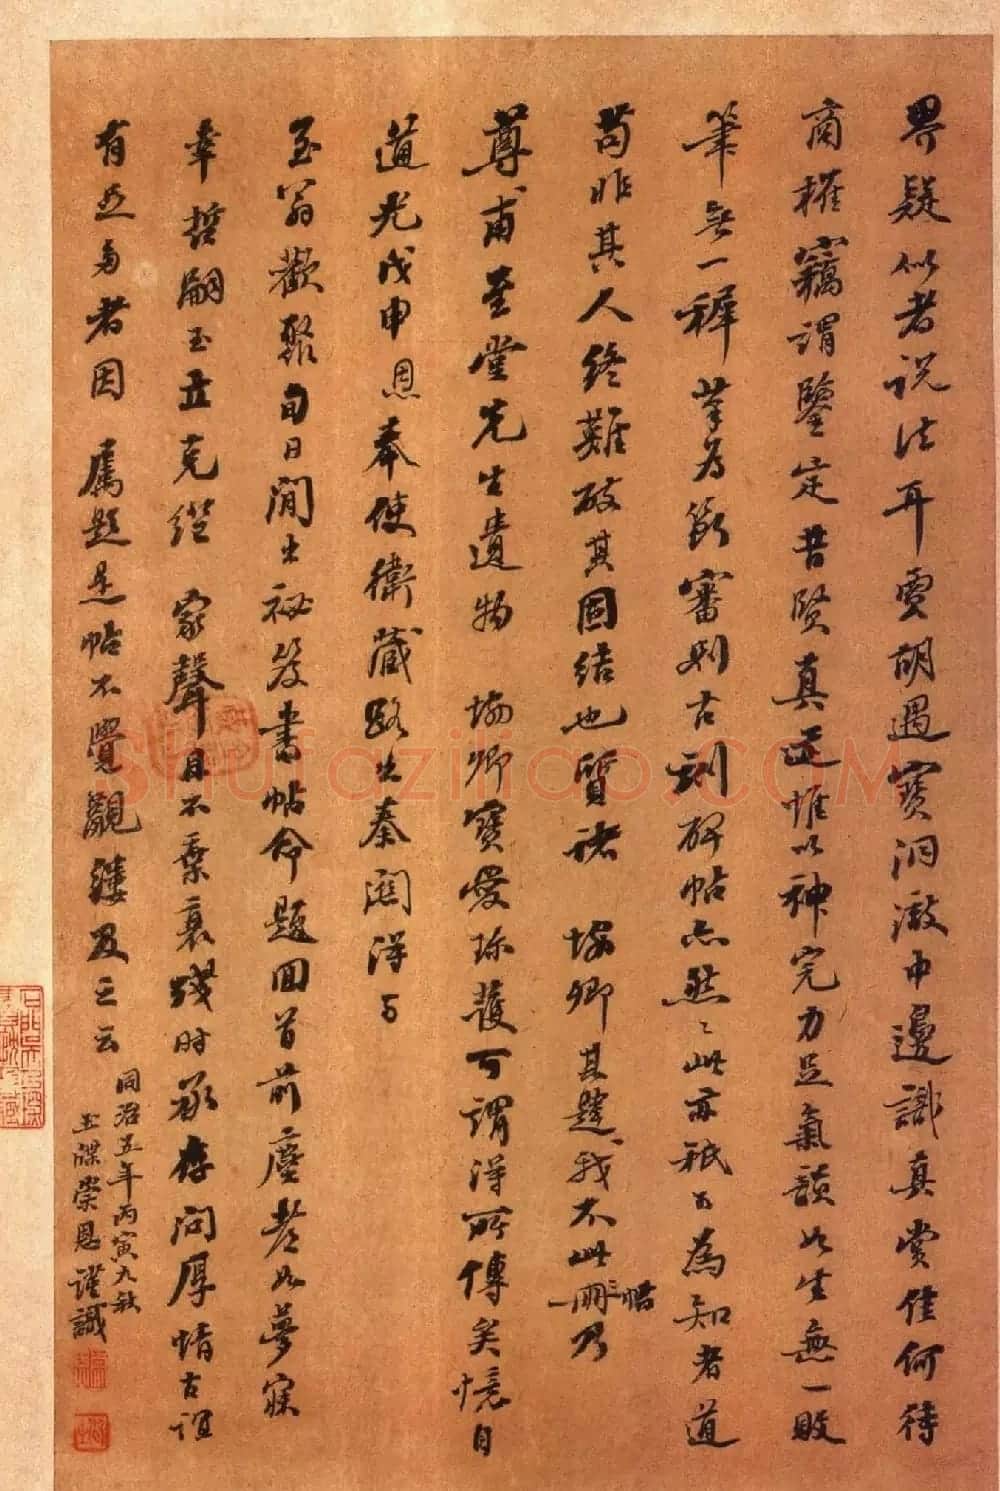 界疑似者说法耳賈胡遇寳洞澈中邊識真赏隹何待
商榷竊謂鑒定昔賢真迹惟以神完力足氣韻如生無一敗
筆無一穉筆為斷審別古刻碑帖亦然〻此亦祇可為知者道
苟非其人終難破其固結也質諸 塲卿其題我不此冊三帖乃
尊甫荃堂先生遺物 塲卿寳愛珎護可謂得所傳矣憶自
道光戊申恩奉使衛藏路出秦關得与
荃翁歡聚旬日間出祕笈書帖命題回首前塵老如夢寐
幸哲嗣玉立克繩 家聲且不棄衰殘時承存問厚情古誼
有足多者因 屬題是帖不覺覼縷及之云
同治五年丙寅九秋
玉牒崇恩謹識
shufaziliao.COM